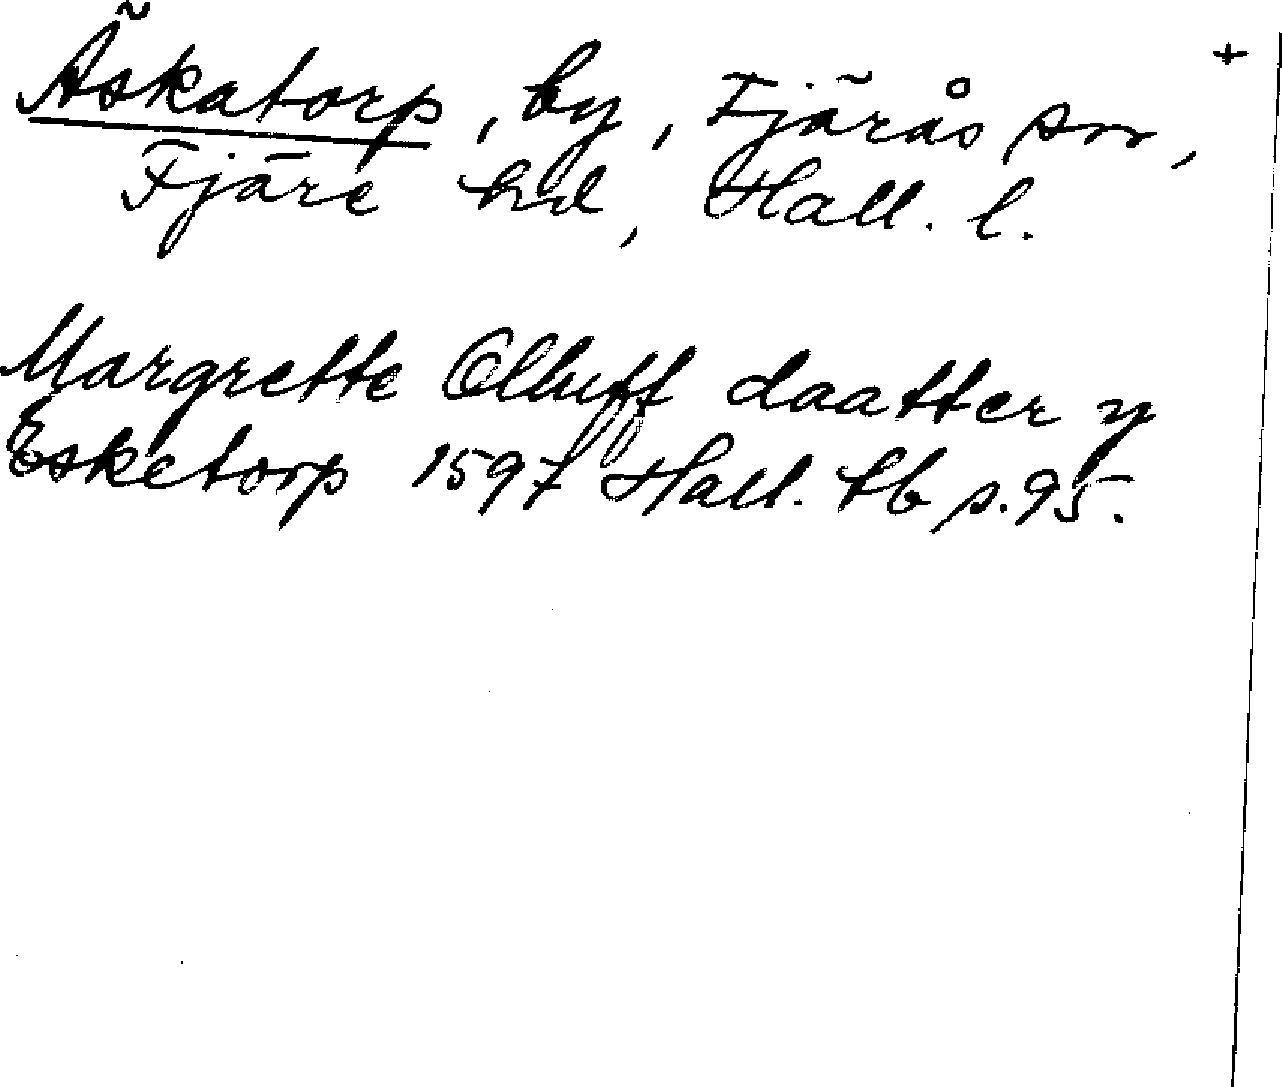 Äskatorp, by, Fjärås sn, +
Fjäre hd, Hall. l.
Margrette Olluff daatter y
Esketorp 1597 Hall. tb s. 95.